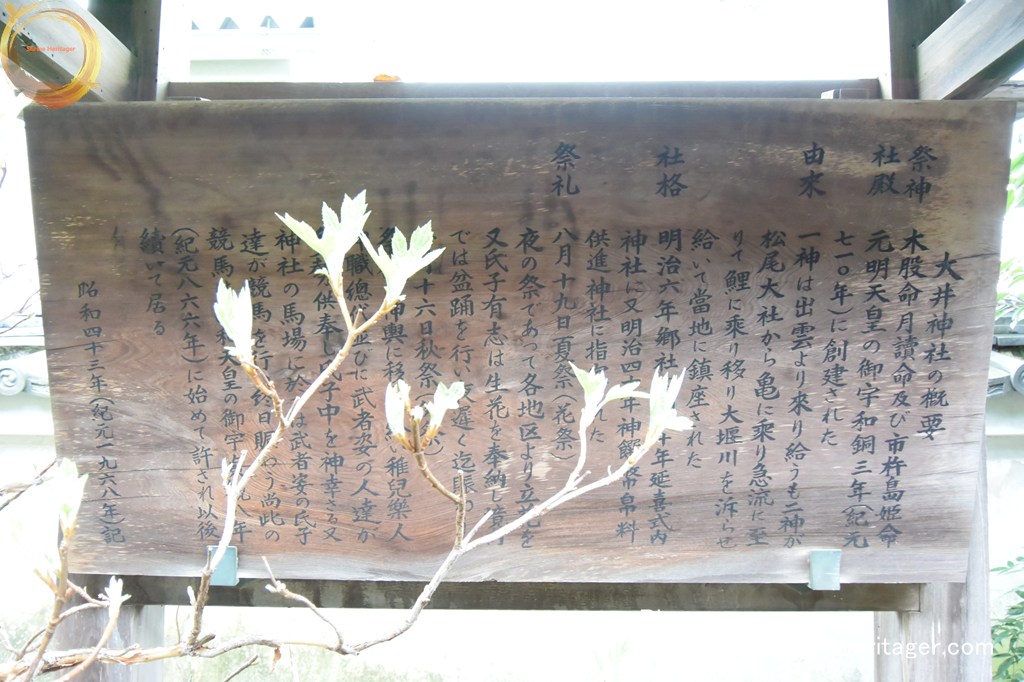 大井神社の概要
祭神 木股命月讀命及び市杵島姫命
社殿 元明天皇の御宇和銅三年(紀元
七一〇年)に創建された
由来 一神は出雲より来り給うも二神が
松尾大社から亀に乘り急流に至
りて鯉に乘り移り大堰川を泝らせ
給いて當地に鎮座された
社格 明治六年郷社 十年延喜式内
神社に又明治四 年神饌幣帛料
供進神社に指 た
祭礼 八月十九日夏祭(花祭)
夜の祭であって各地区より立花を
又氏子有志は生花を奉納し境
では盆踊を行い夜遅く迄賑
十六日秋祭
神輿に移 い稚兒樂人
職總 並びに武者姿の人達が
供奉し 氏子中を神幸さる又
神社の馬場に於 は武者姿の氏子
達が競馬を行 終日賑わう尚此の
競馬 和天皇の御宇 八年
(紀元八六六年)に始めて許され以後
續いて居る
昭和四十三年(紀元一九六八年)記
ritager.com